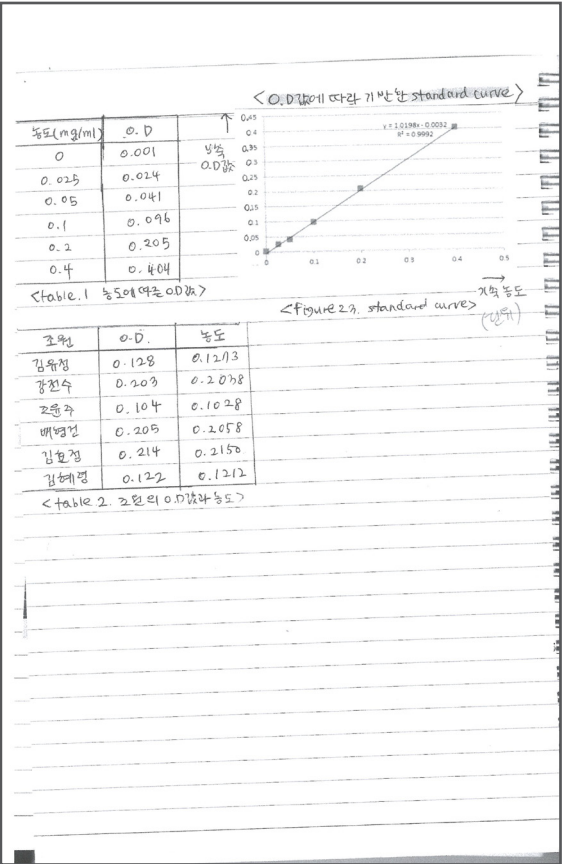 <O.D값에 따라 기반한 standard curve>
농도(mg/ml) O.D
0 0.001
0.025 0.024
0.05 0.041
0.1 0.096
0.2 0.205
0.4 0.404
<table.1 농도에 따른 O.D값>
↑
y축
O.D값
0.45
0.4
0.35
0.3
0.25
0.2
0.15
0.1
0.05
0
0 0.1 0.2 0.3 0.4 0.5
y = 1.0198x - 0.0032
R² = 0.9992
→
x축 농도
(단위)
<Figure 23. standard curve>
조원 O.D. 농도
김유정 0.128 0.1273
강전수 0.203 0.2038
조윤주 0.104 0.1028
배형건 0.205 0.2058
김효정 0.214 0.2150
김혜령 0.122 0.1212
<table 2. 조원의 O.D값과 농도>